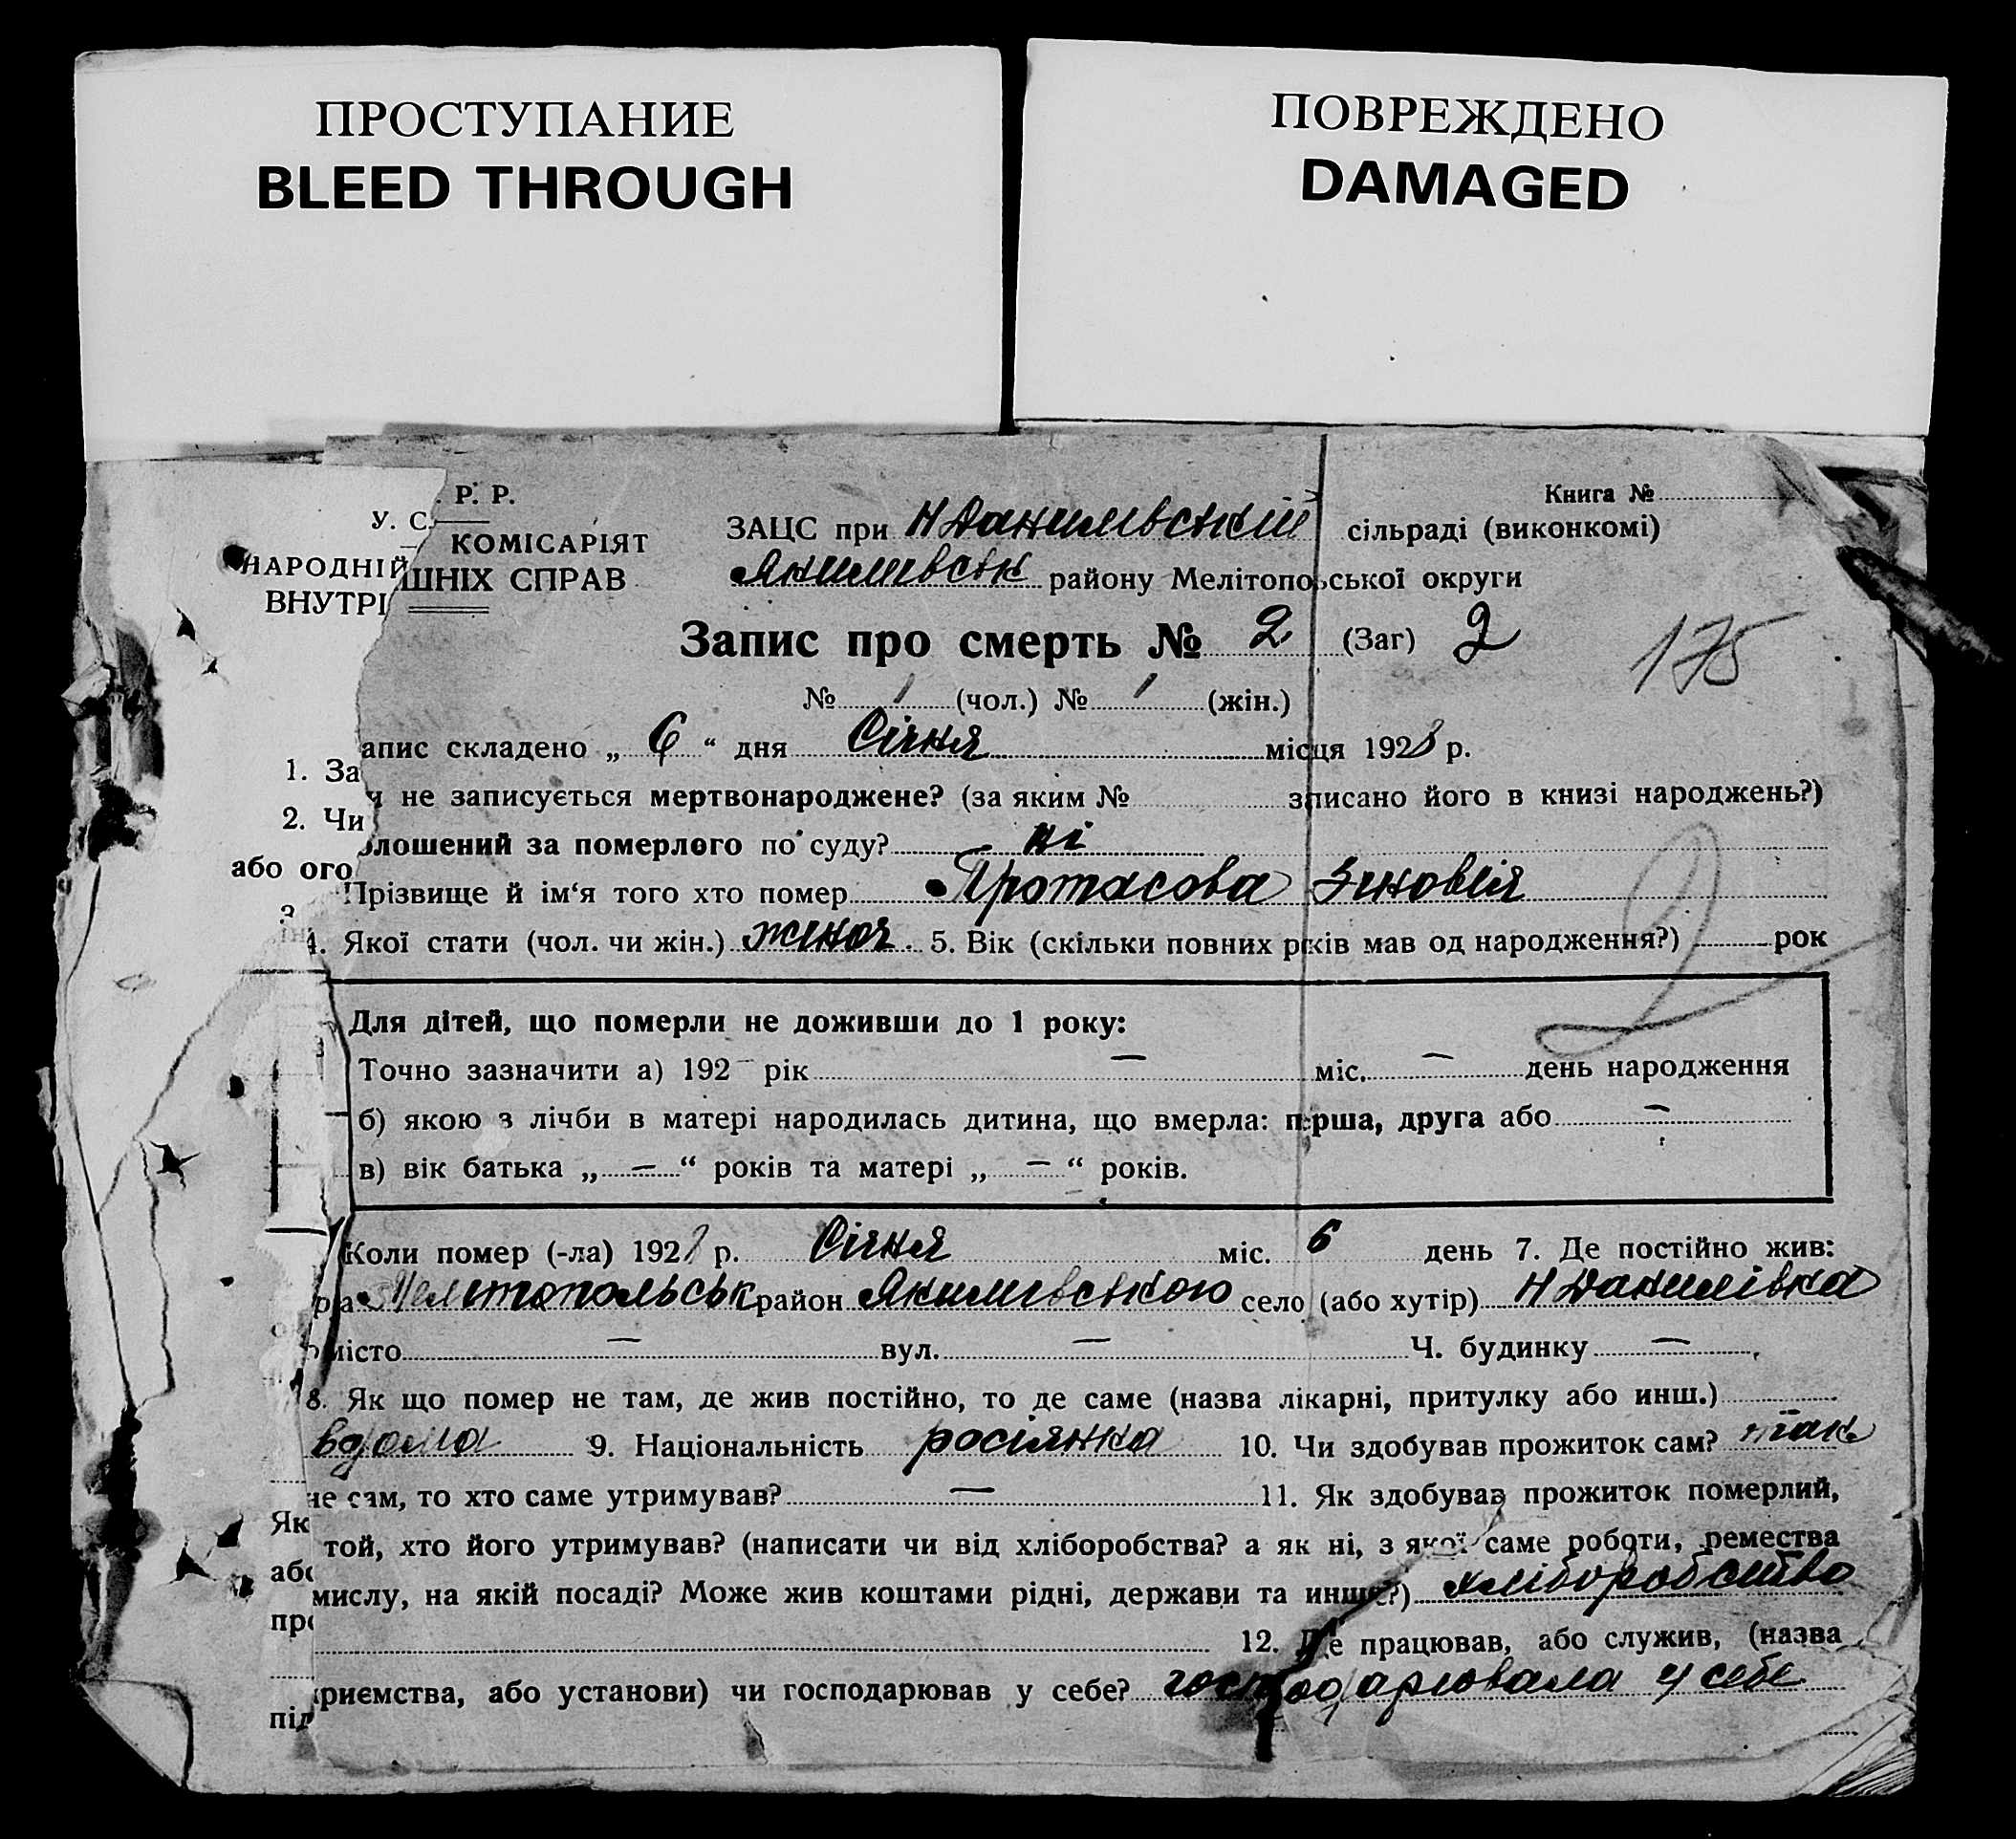 ПРОСТУПАНИЕ
BLEED THROUGH
ПОВРЕЖДЕНО
DAMAGED
У. С. Р. Р.
НАРОДНІЙ КОМІСАРІЯТ
ВНУТРІШНІХ СПРАВ
Книга №
ЗАЦС при Н Данилівській сільраді (виконкомі)
Якимівськ району Мелітопольської округи
Запис про смерть № 2 (Заг) 2
175
№ 1 (чол.) № 1 (жін.)
1. Запис складено „ 6 “ дня Січня місця 1928 р.
2. Чи не записується мертвонароджене? (за яким № записано його в книзі народжень?)
або оголошений за померлого по суду? ні
3. Прізвище й ім‘я того хто помер Протасова Зиновія
4. Якої стати (чол. чи жін.) жіноч. 5. Вік (скільки повних років мав од народження?) рок
2
Для дітей, що померли не доживши до 1 року:
Точно зазначити а) 192 – рік — міс. — день народження
б) якою з лічби в матері народилась дитина, що вмерла: перша, друга або —
в) вік батька „ — “ років та матері „ — “ років.
Коли помер (-ла) 1928 р. Січня міс. 6 день 7. Де постійно жив:
Мелітопольськ район Якимівського село (або хутір) Н Данилівка
місто — вул. — Ч. будинку —
8. Як що помер не там, де жив постійно, то де саме (назва лікарні, притулку або инш.)
вдома 9. Національність росіянка 10. Чи здобував прожиток сам? так
Як не сам, то хто саме утримував? — 11. Як здобував прожиток померлий,
або той, хто його утримував? (написати чи від хліборобства? а як ні, з якої саме роботи, ремества
промислу, на якій посаді? Може жив коштами рідні, держави та инше?) хліборобство
12. Де працював, або служив, (назва
підприємства, або установи) чи господарював у себе? господарювала у себе